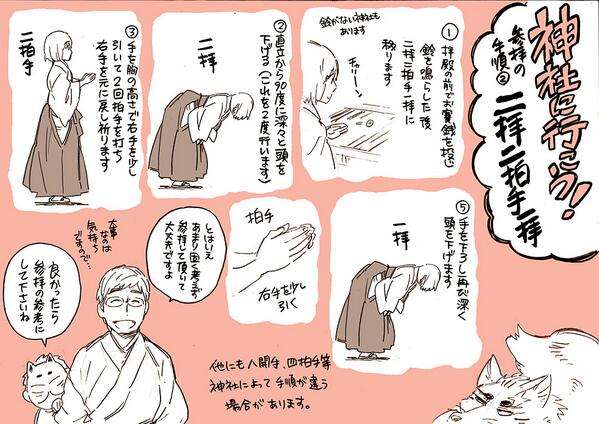 神社に行こう!
参拝の
手順②
二拝二拍手一拝
①拝殿の前でお賽銭を投じ
鈴を鳴らした後
二拝二拍手一拝に
移ります
鈴がない神社も
あります
チャリーン
②直立から90度に深々と頭を
下げる(これを2度行います)
二拝
③手を胸の高さで右手を少し
引いて2回拍手を打ち
右手を元に戻し祈ります
二拍手
⑤手を下ろし再び深く
頭を下げます
一拝
拍手
右手を少し
引く
とはいえ
あまり固く考えず
参拝して頂いて
大丈夫ですよ
大事
なのは
気持ち
ですので…
良かったら
参拝の参考に
して下さいね
他にも八開手、四拍手等
神社によって手順が違う
場合があります。